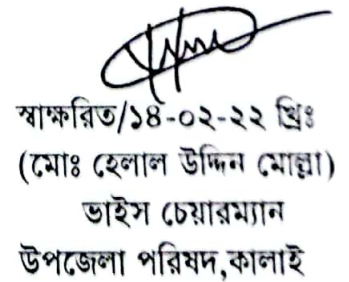 স্বাক্ষরিত/১৪-০২-২২ খ্রিঃ
(মোঃ হেলাল উদ্দিন মোল্লা)
ভাইস চেয়ারম্যান
উপজেলা পরিষদ,কালাই